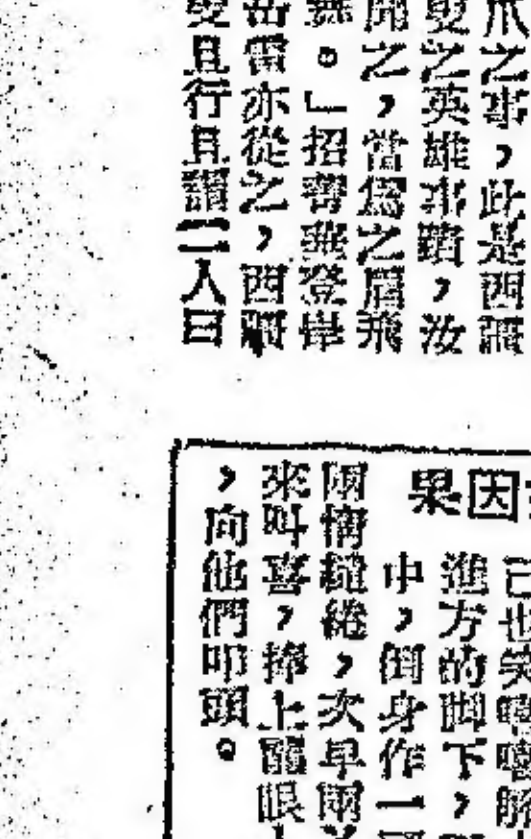 爪之事，此是西㴲
叟之英雄事蹟，汝
聞之，當爲之眉飛
舞。」招劈華登岸
岳雷亦從之，西㴲
叟且行且謂二人曰
因果
己也笑嘻嘻解
進方的脚下，
中，倒身作一
兩情繾綣，次早兩
來叫喜，捧上龍眼
，向他們叩頭。